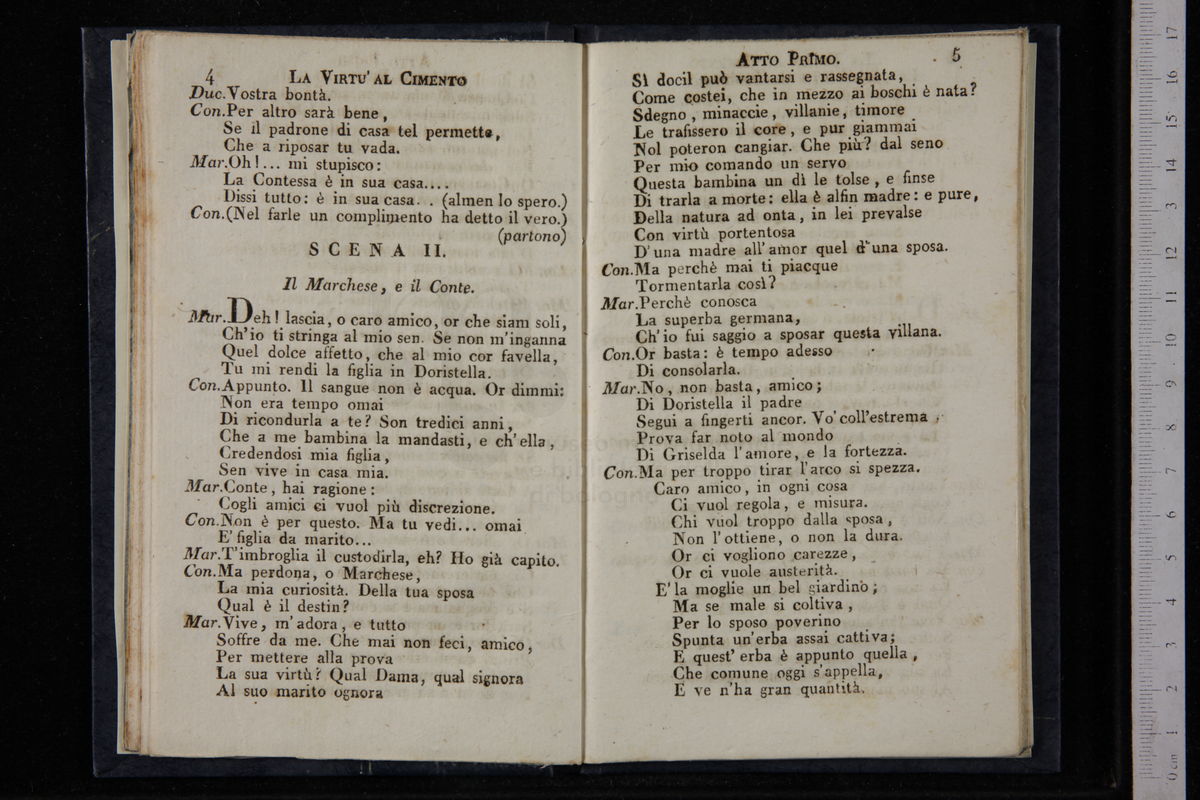 4 LA VIRTU' AL CIMENTO
Duc.Vostra bontà.
Con.Per altro sarà bene,
Se il padrone di casa tel permette,
Che a riposar tu vada.
Mar.Oh!... mi stupisco:
La Contessa è in sua casa....
Dissi tutto: è in sua casa. . (almen lo spero.)
Con.(Nel farle un complimento ha detto il vero.)
(partono)
SCENA II.
Il Marchese, e il Conte.
Mar.Deh! lascia, o caro amico, or che siam soli,
Ch'io ti stringa al mio sen. Se non m'inganna
Quel dolce affetto, che al mio cor favella,
Tu mi rendi la figlia in Doristella.
Con.Appunto. Il sangue non è acqua. Or dimmi:
Non era tempo omai
Di ricondurla a te? Son tredici anni,
Che a me bambina la mandasti, e ch'ella,
Credendosi mia figlia,
Sen vive in casa mia.
Mar.Conte, hai ragione:
Cogli amici ci vuol più discrezione.
Con.Non è per questo. Ma tu vedi... omai
E' figlia da marito...
Mar.T'imbroglia il custodirla, eh? Ho già capito.
Con.Ma perdona, o Marchese,
La mia curiosità. Della tua sposa
Qual è il destin?
Mar.Vive, m'adora, e tutto
Soffre da me. Che mai non feci, amico,
Per mettere alla prova
La sua virtù? Qual Dama, qual signora
Al suo marito ognora
ATTO PRIMO. 5
Sì docil può vantarsi e rassegnata,
Come costei, che in mezzo ai boschi è nata?
Sdegno, minaccie, villanie, timore
Le trafissero il core, e pur giammai
Nol poteron cangiar. Che più? dal seno
Per mio comando un servo
Questa bambina un dì le tolse, e finse
Di trarla a morte: ella è alfin madre: e pure,
Della natura ad onta, in lei prevalse
Con virtù portentosa
D'una madre all'amor quel d'una sposa.
Con.Ma perchè mai ti piacque
Tormentarla così?
Mar.Perchè conosca
La superba germana,
Ch'io fui saggio a sposar questa villana.
Con.Or basta: è tempo adesso
Di consolarla.
Mar.No, non basta, amico;
Di Doristella il padre
Segui a fingerti ancor. Vo' coll'estrema
Prova far noto al mondo
Di Griselda l'amore, e la fortezza.
Con.Ma per troppo tirar l'arco si spezza.
Caro amico, in ogni cosa
Ci vuol regola, e misura.
Chi vuol troppo dalla sposa,
Non l'ottiene, o non la dura.
Or ci vogliono carezze,
Or ci vuole austerità.
E' la moglie un bel giardino;
Ma se male si coltiva,
Per lo sposo poverino
Spunta un'erba assai cattiva;
E quest' erba è appunto quella,
Che comune oggi s'appella,
E ve n'ha gran quantità.
0 cm 1 2 3 4 5 6 7 8 9 10 11 12 13 14 15 16 17